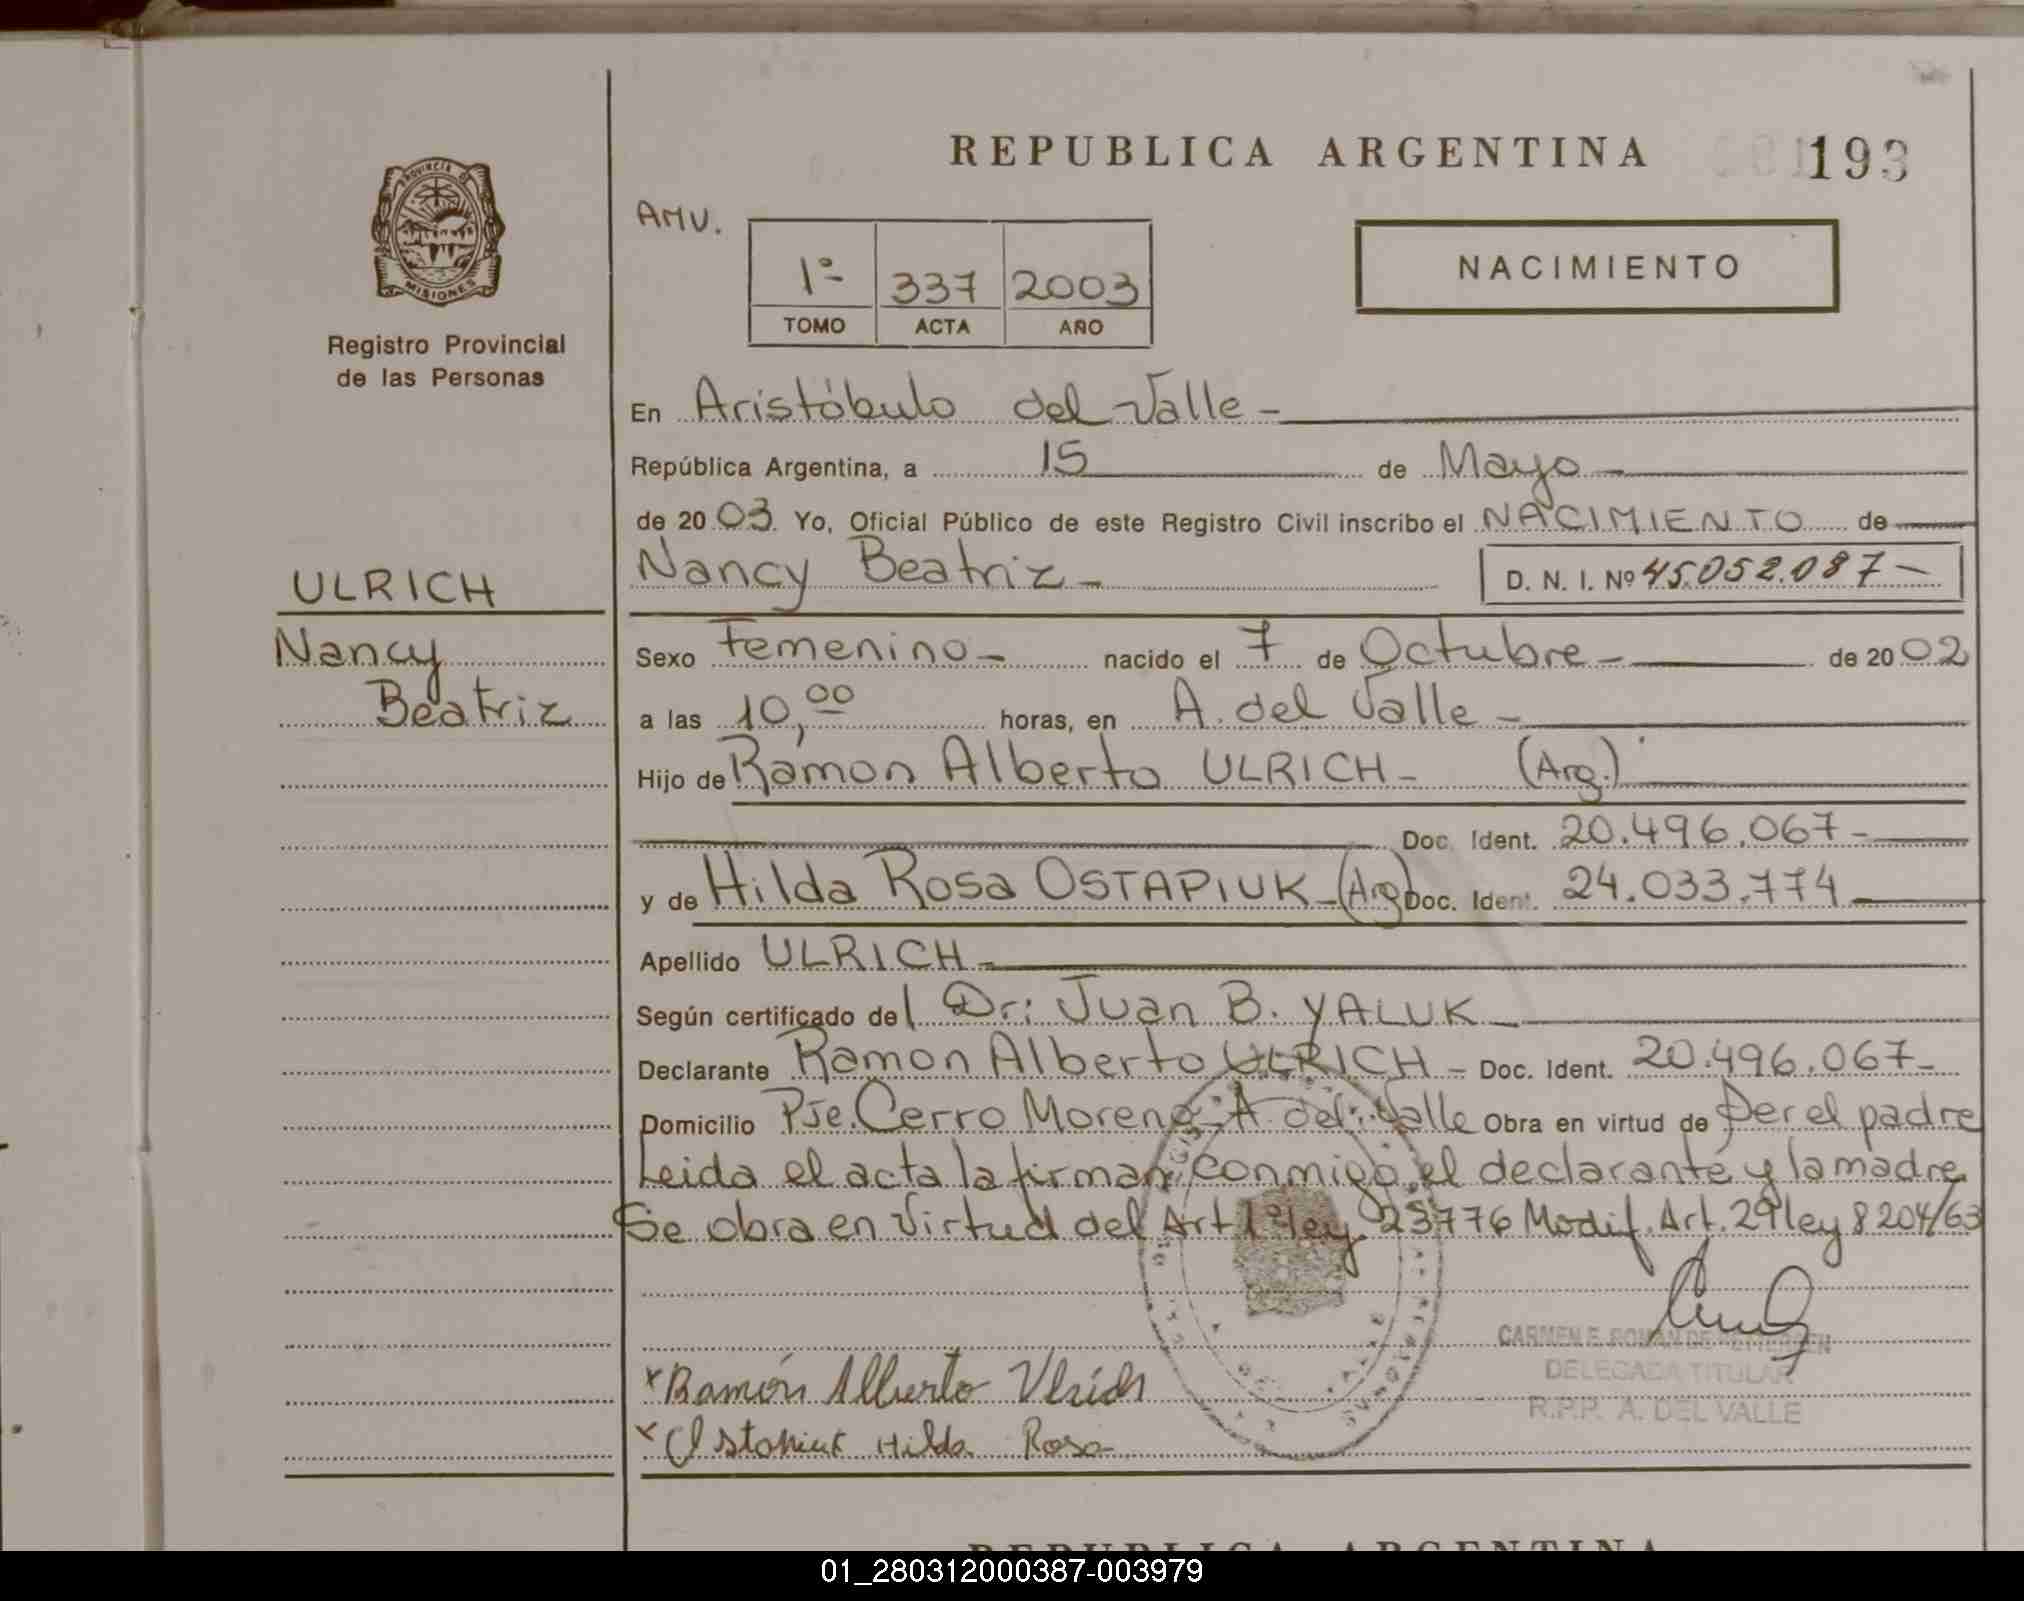 REPUBLICA ARGENTINA 193
AMV.
1º 337 2003
TOMO ACTA AÑO
NACIMIENTO
PROVINCIA D
MISIONES
Registro Provincial
de las Personas
En Aristóbulo del Valle -
República Argentina, a 15 de Mayo -
de 2003. Yo, Oficial Público de este Registro Civil inscribo el NACIMIENTO de
Nancy Beatriz - D. N. I. Nº 45.052.087 -
ULRICH
Nancy
Beatriz
Sexo Femenino - nacido el 7 de Octubre - de 2002
a las 10,00 horas, en A. del Valle -
Hijo de Ramón Alberto ULRICH - (Arg.)
Doc. Ident. 20.496.067 -
y de Hilda Rosa OSTAPIUK - (Arg) Doc. Ident. 24.033.774
Apellido ULRICH -
Según certificado del Dr: Juan B. YALUK -
Declarante Ramon Alberto ULRICH - Doc. Ident. 20.496.067 -
Domicilio Pje. Cerro Moreno - A. del Valle Obra en virtud de Per el padre
Leida el acta la firman conmigo el declarante y la madre
Se obra en virtud del Art 1º ley 23776 Modif. Art. 29 ley 8204/63
CARMEN E. ROMAN DE
DELEGADA TITULAR
R.P.P. A. DEL VALLE
x Ramón Alberto Ulrich
x Ostapiuk Hilda Rosa
REPUBLICA ARGENTINA
01_280312000387-003979